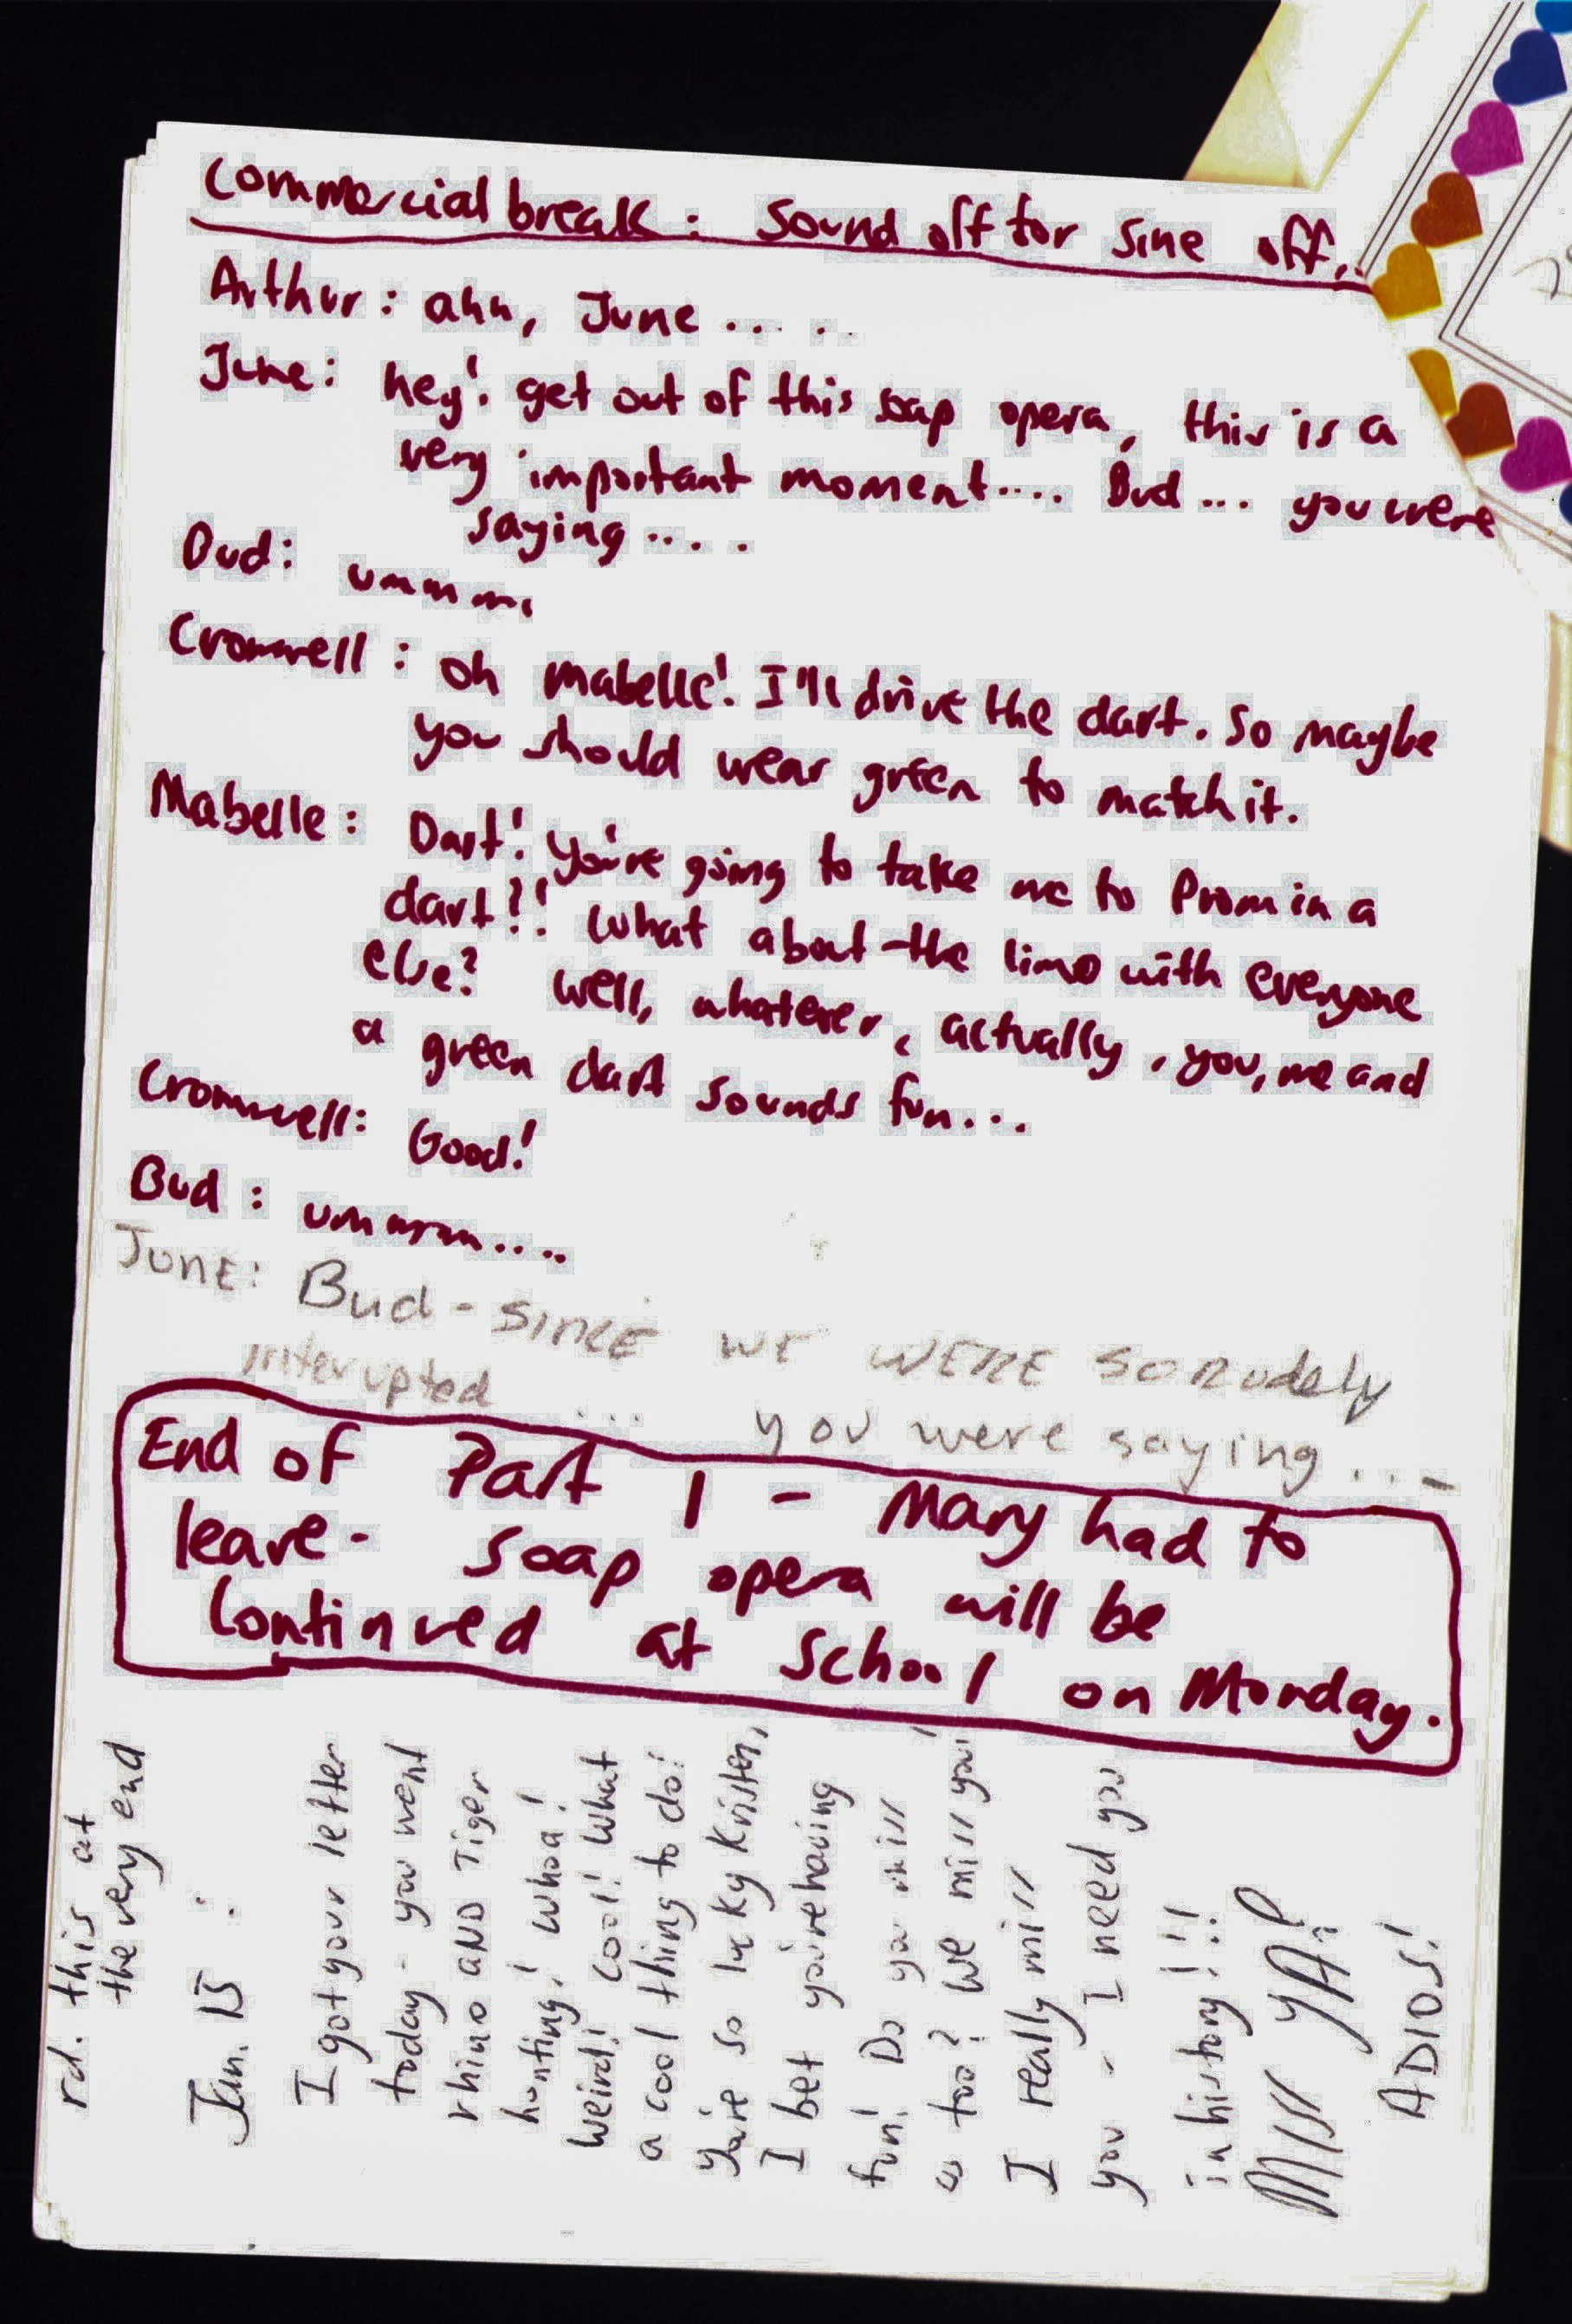 Commercial break: Sound off for Sine off.
Arthur: ahh, June .....
June: hey! get out of this soap opera, this is a
very important moment.... Bud... you were
saying....
Bud: ummm.
Cromwell: Oh Mabelle! I'll drive the dart. So maybe
you should wear green to match it.
Mabelle: Dart! You're going to take me to Prom in a
dart?! What about the limo with everyone
else? Well, whatever, actually, you, me and
a green dart sounds fun...
Cromwell: Good!
Bud: ummmm....
June: Bud - since we were so rudely
interupted ... you were saying...
End of Part 1 - Mary had to
leave - soap opera will be
Continued at School on Monday.
rd. this at
the very end
Jan. 15:
I got your letter
today - you went
rhino AND Tiger
hunting! Whoa!
Weird! Cool! What
a cool thing to do!
You're so lucky Kristen,
I bet you're having
fun! Do you miss
us too? We miss you!
I really miss
you - I need you
in history!!!
MISS YA!
ADIOS!